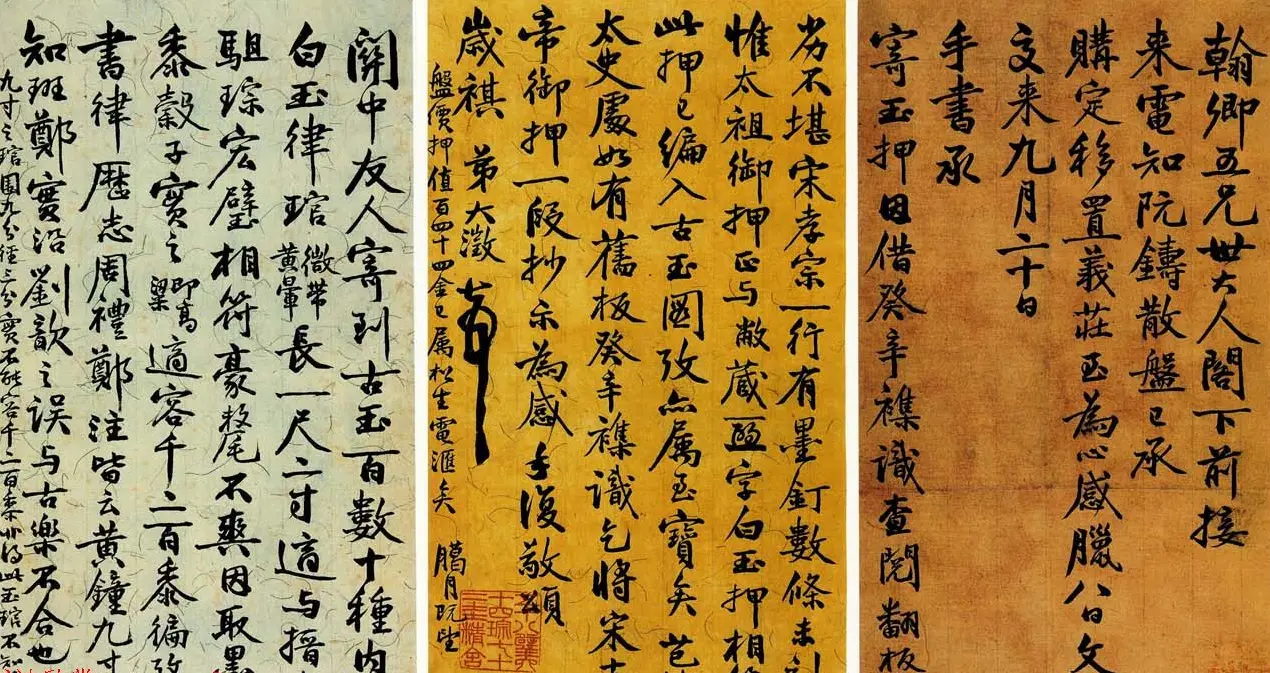 翰卿五兄世大人閣下前接
来電知阮鑄散盤已承
購定移置義莊至為心感臘八日文
文来九月二十日
手書承
寄玉押因借癸辛襍識查閱翻板
劣不堪宋孝宗一行有墨釘數條未刻
惟太祖御押正与敝藏字白玉押相
此押已编入古玉圖攷亦属至寶矣芑
太史處如有舊板癸辛襍識乞將宋十
帝御押一段抄示為感手復敬頌
嵗祺 弟大澂
盤價押值百四十四金已属松生電滙矣 臈月既望
關中友人寄到古玉百數十種内
白玉律琯微带黄暈長一尺二寸適与搢
駔琮宏璧相符豪氂不爽因取黑
黍穀子實之即高粱適容千二百黍徧攷
書律厯志周禮鄭注皆云黄鐘九寸
知班鄭實沿劉歆之误与古樂不合也
九寸之琯圍九分径三分實不能容千二百黍非得此玉琯不知